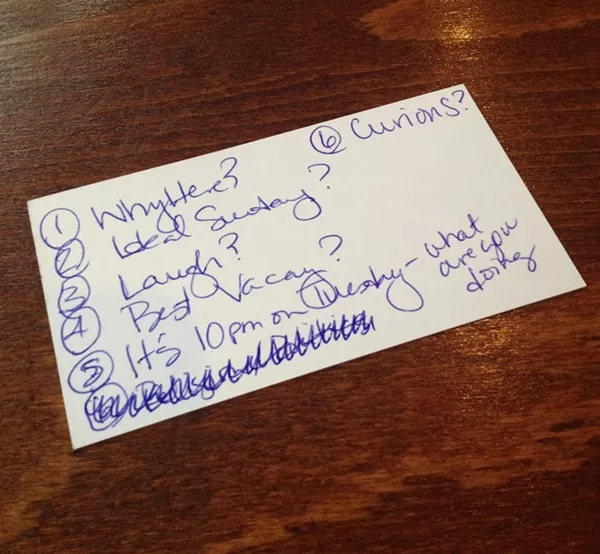 ① Why Here?
② Ideal Sunday?
③ Laugh?
④ Best Vacay?
⑤ It's 10pm on Tuesday - what
are you
doing
⑥ Curious?